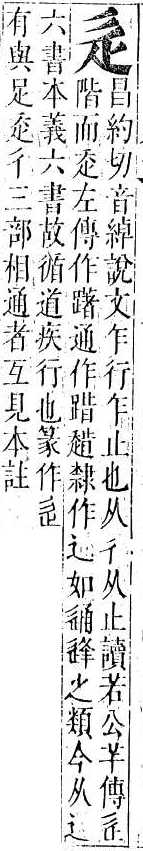 辵
昌約切音綽說文乍行乍止也从彳从止讀若公羊傳辵
階而走左傳作躇通作踖趞隸作辶如通逢之類今从辶
六書本義六書故循道疾行也篆作辵
有與足走彳三部相通者互見本註